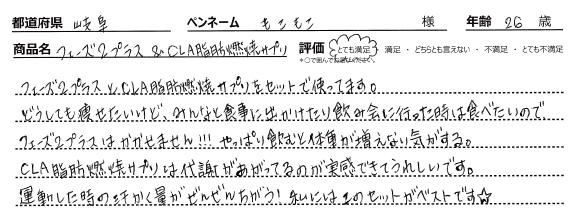 都道府県 岐阜 ペンネーム もこもこ 様 年齢 26 歳
商品名 フェーズ2プラス & CLA脂肪燃焼サプリ 評価 とても満足 ・ 満足 ・ どちらとも言えない ・ 不満足 ・ とても不満足
*○で囲んでお選びください。
フェーズ2プラスとCLA脂肪燃焼サプリをセットで使ってます。
どうしても痩せたいけど、みんなと食事に出かけたり飲み会に行った時は食べたいので
フェーズ2プラスはかかせません!!! やっぱり飲むと体重が増えない気がする。
CLA脂肪燃焼サプリは代謝があがってるのが実感できてうれしいです。
運動した時の汗かく量がぜんぜんちがう! 私にはこのセットがベストです☆